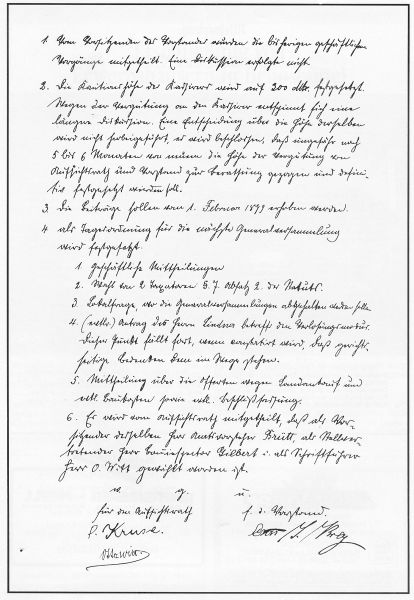 1. Vom Vorsitzenden des Vorstandes wurden die bisherigen geschäftlichen
Vorgänge mitgetheilt. Eine Diskussion erfolgte nicht.
2. Die Kautionshöhe des Kassirers wird auf 200 Mk. festgesetzt.
Wegen der Vergütung an den Kassirer entspinnt sich eine
längere Diskussion. Eine Entscheidung über die Höhe derselben
wird nicht herbeigeführt, es wird beschlossen, daß ungefähr nach
5 bis 6 Monaten von neuem die Höhe der Vergütung von
Aufsichtsrath und Vorstand zur Berathung gezogen und defini-
tiv festgesetzt werden soll.
3. Die Beiträge sollen vom 1. Februar 1899 erhoben werden.
4. als Tagesordnung für die nächste Generalversammlung
wird festgesetzt:
1. Geschäftliche Mittheilungen
2. Wahl von 2 Taxatoren §. 7. Absatz 2. des Statuts.
3. Lokalfrage, wo die Generalversammlungen abgehalten werden sollen
4. Antrag des Herrn betreff. den Verlosungsmodus.
Dieser Punkt fällt fort, wenn constatirt wird, daß gerichts-
seitige Bedenken dem im Wege stehen.
5. Mittheilung über die Offerten wegen Landankauf und
evtl. Baukosten sowie evtl. Beschlußfassung.
6. Es wird vom Aufsichtsrath mitgetheilt, daß als Vor-
sitzender desselben Herr Amtsvorsteher, als Stellver-
tretender Herr Bauinspektor Gilbert u. als Schriftführer
Herr O. Witt gewählt worden ist.
v. g. u.
für den Aufsichtsrath
f. d. Vorstand.
Kruse.
Otto Witt.